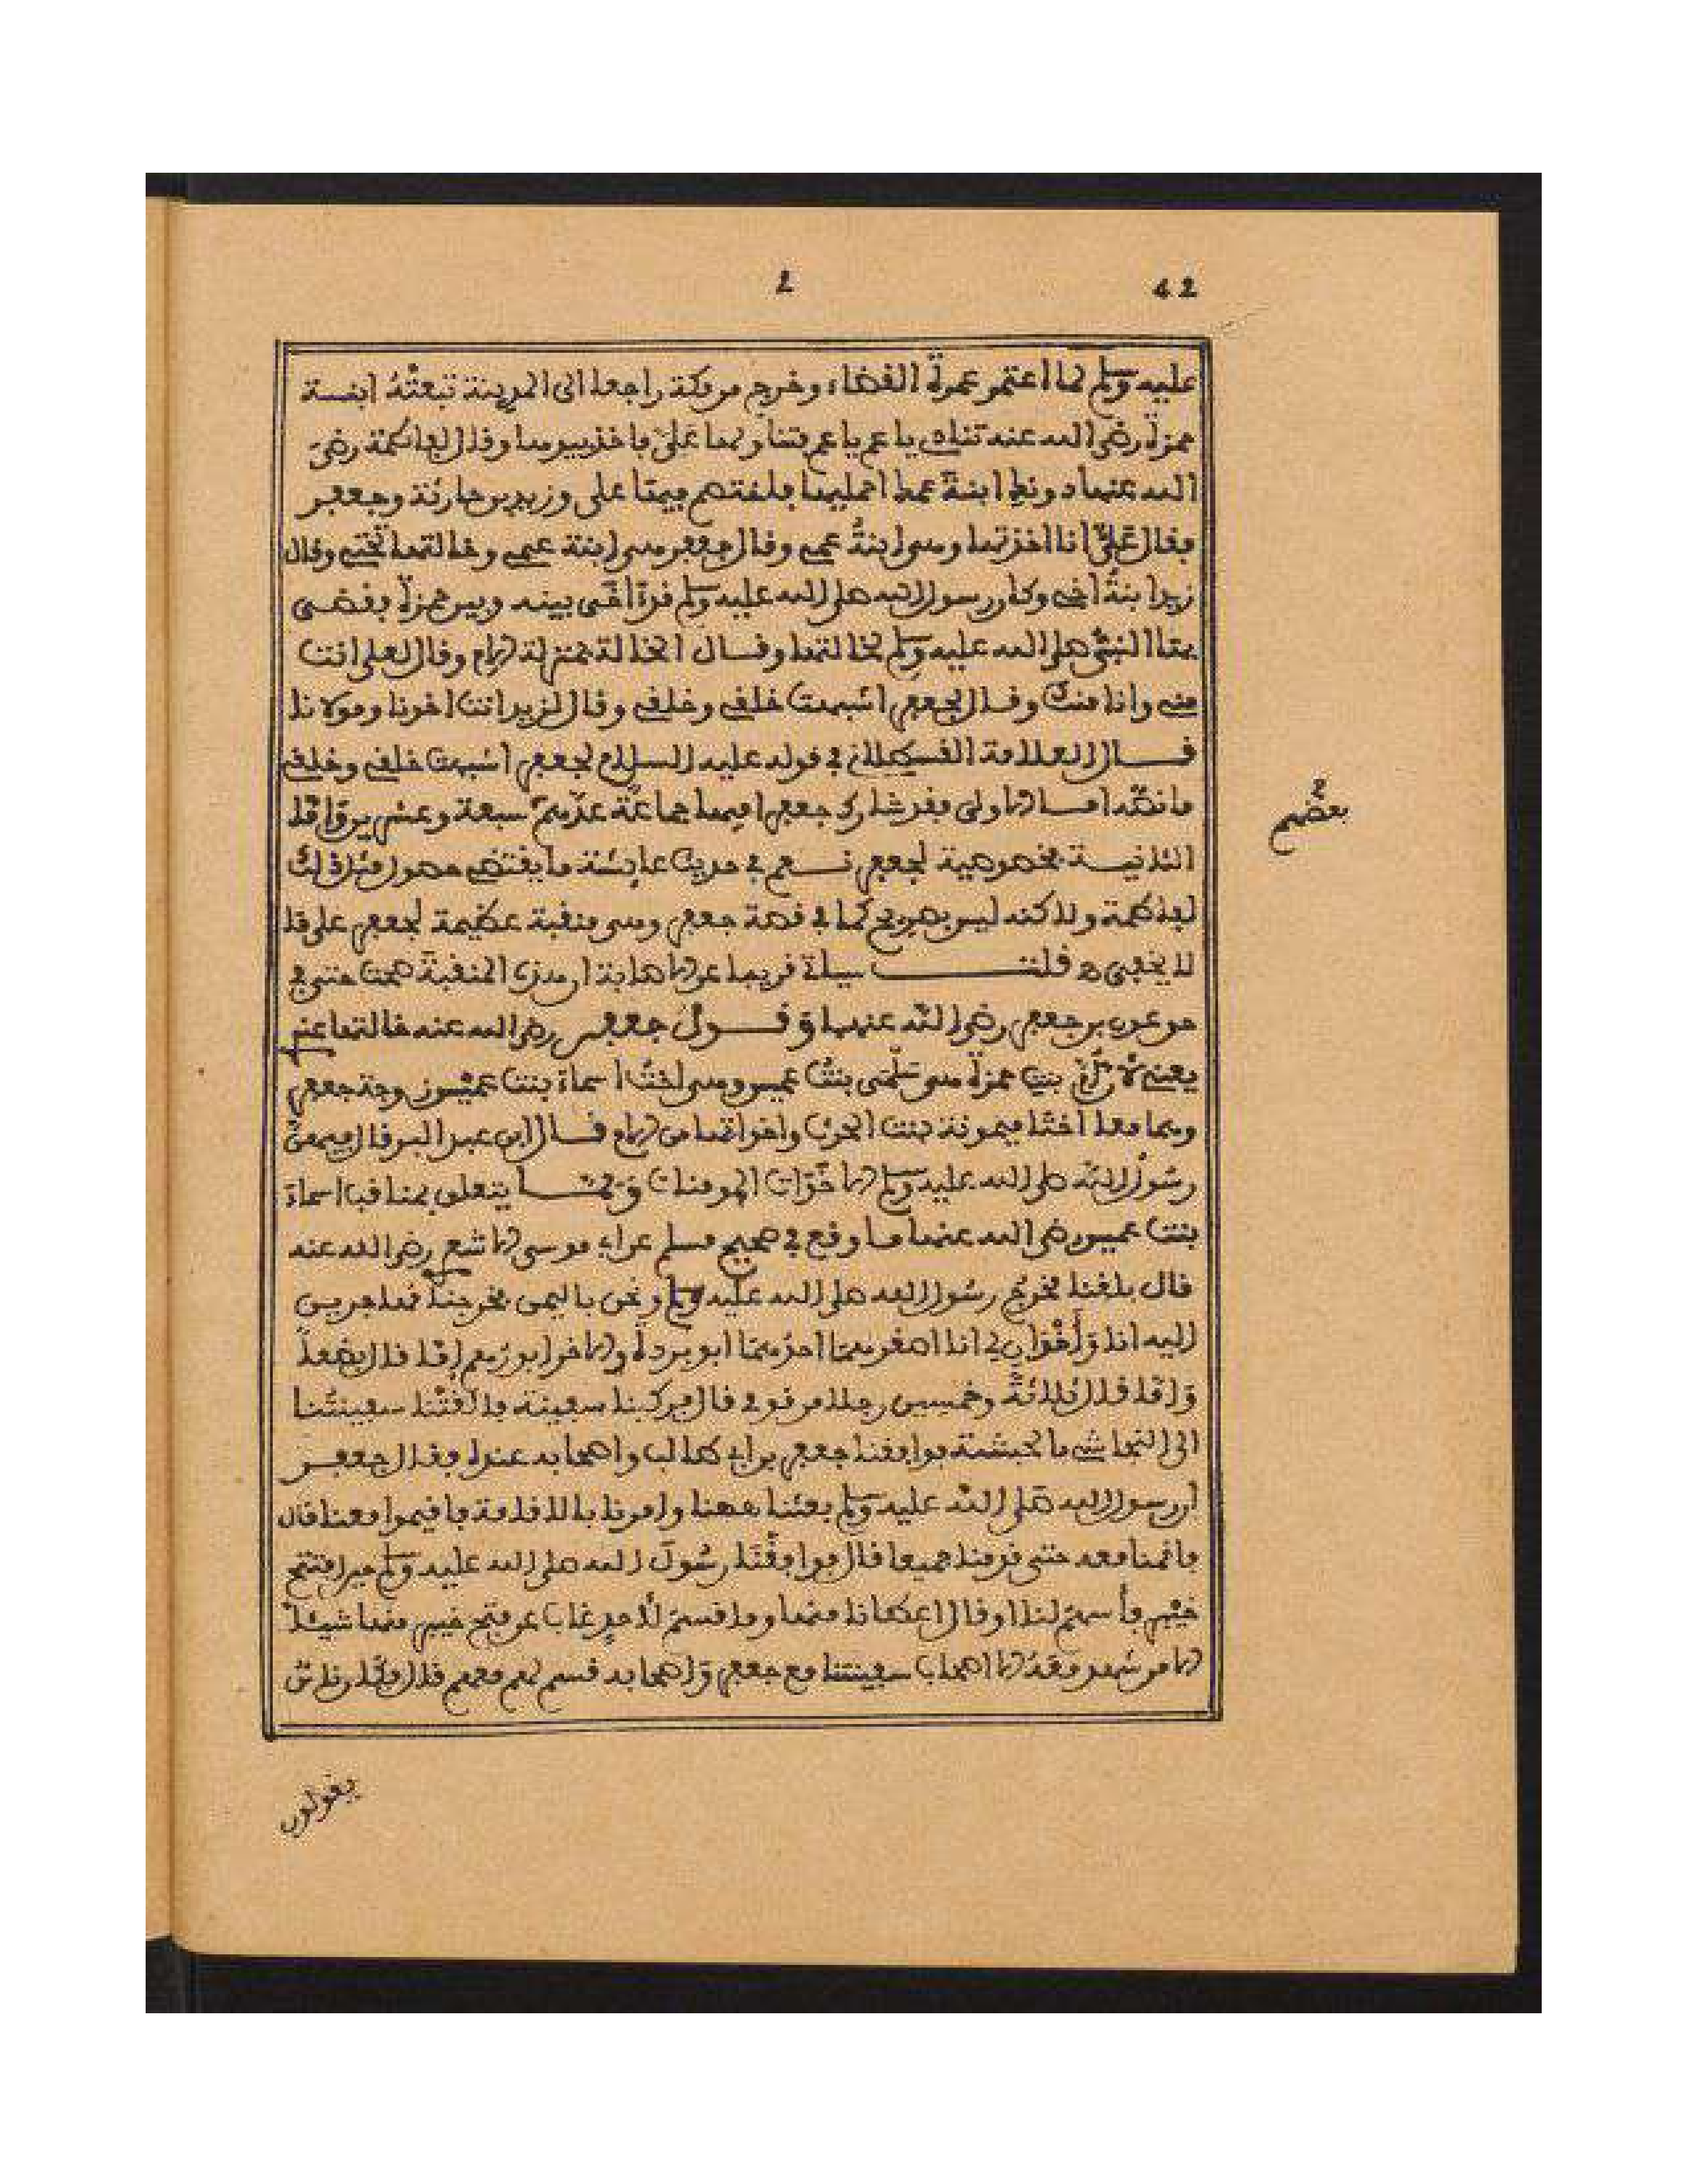 2 42
عليه وسلم لما اعتمر عمرة القضاء وخرج من مكة راجعا الى المدينة تبعته ابنـة
حمزة رضي الله عنه تنادي يا عم يا عم فتناولها علي فاخذ بيدها وقال لفاطمة رضي
الله عنها دونك ابنة عمك احمليها فاختصم فيها علي وزيد بن حارثة وجعفر
فقال علي انا اخذتها وهي ابنة عمي وقال جعفر هي ابنة عمي وخالتها تحتي وقال
زيد ابنة اخي وكان رسول الله صلى الله عليه وسلم قد آخى بينه وبين حمزة فقضى
بها النبي صلى الله عليه وسلم لخالتها وقـال الخالة بمنزلة الام وقال لعلي انت
مني وانا منك وقـال لجعفر اشبهت خلقي وخلقي وقال لزيد انت اخونا ومولانا
قـــال العلامة القسطلاني في قوله عليه السلام لجعفر اشبهت خلقي وخلقي
ما نصه امـا الاولى فقد شارك جعفرا فيها جماعة عدهم سبعة وعشرين واما
بعضهم
الثانيـة فخصوصية لجعفر نــعم في حديث عايشة ما يقتضي حصول مثل ذلك
لفاطمة ولاكنه ليس بصريح كما في قصة جعفر وهي منقبة عظيمة لجعفر على ما
لا يخفى ه قلتــــ سياة قريبا عن الاصابة ان هذه المنقبة صحت حتى في
حق عون بن جعفر رضي الله عنهما وقـــول جعفر رضي الله عنه خالتها عنه
يعني لان ام بنت حمزة هي سلمى بنت عميس وهي اخت اسماء بنت عميس زوجة جعفر
وهما معا اختا ميمونة بنت الحرث واخواتها من الام قــال ابن عبد البر قال فيهن
رسول الله صلى الله عليه وسلم الاخوات المومنات وممــا يتعلق بمناقب اسماء
بنت عميس رضي الله عنها ما وقع في صحيح مسلم عن ابي موسى الاشعري رضي الله عنه
قال بلغنا مخرج رسول الله صلى الله عليه وسلم ونحن باليمن فخرجنا مهاجرين
اليه انا وأخوان لي انا اصغرهما احدهما ابو بردة والاخر ابو رهم إما قال بضعا
وإما قال ثلاثة وخمسين رجلا من قومي قال فركبنا سفينة فالقتنا سفينتنا
الى النجاشي بالحبشة فوافقنا جعفر بن ابي طالب واصحابه عنده فقال جعفـر
ان رسول الله صلى الله عليه وسلم بعثنا ههنا وامرنا بالاقامة فاقيموا معنا قال
فاقمنا معه حتى قدمنا جميعا قال فوافقنا رسول الله صلى الله عليه وسلم حين افتتح
خيبر فأسهم لنا او قال اعطانا منها وما قسم لأحد غاب عن فتح خيبر منها شيئا
الا من شهد معه الا اصحاب سفينتنا مع جعفر واصحابه قسم لهم معهم قال فكان ناس
يقولون